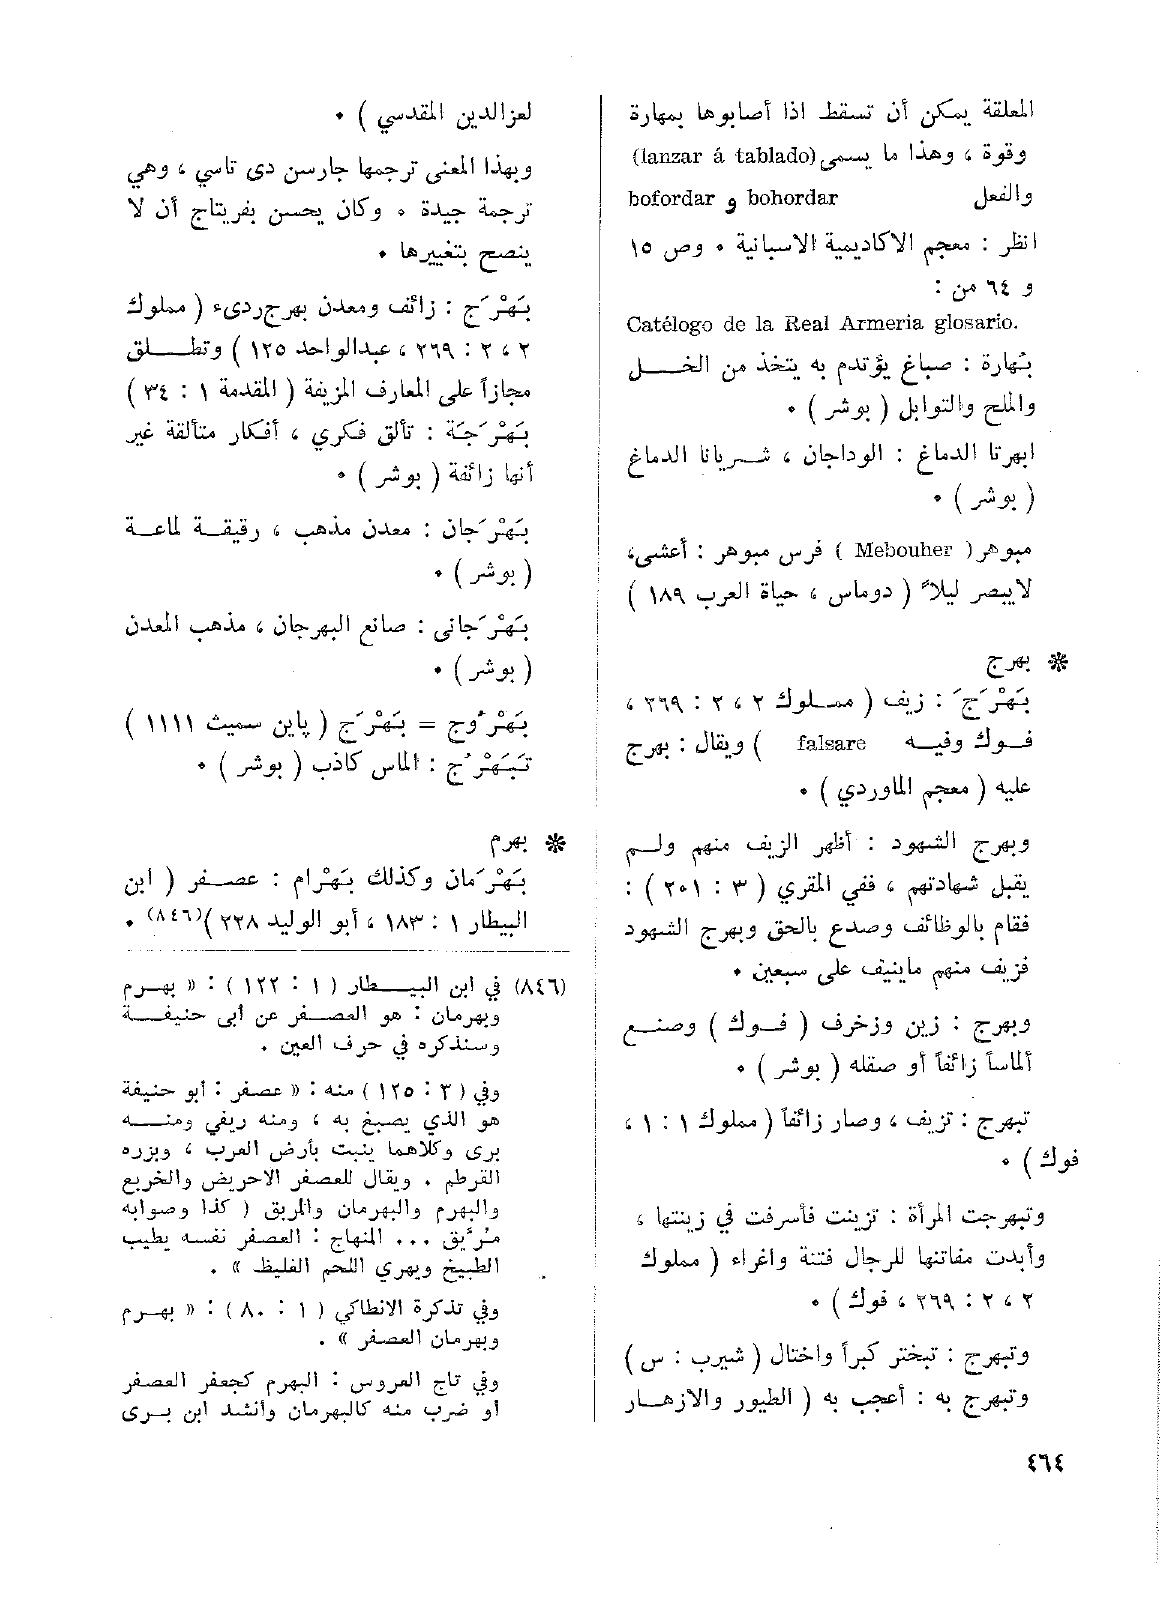 المعلقة يمكن أن تسقط اذا أصابوها بمهارة
وقوة ، وهذا ما يسمى (lanzar á tablado)
والفعل bohordar و bofordar
انظر : معجم الاكاديمية الاسبانية ٠ وص ١٥
و ٦٤ من :
Catélogo de la Real Armeria glosario.
بُهارة : صباغ يؤتدم به يتخذ من الخــل
والملح والتوابل ( بوشر ) ٠
ابهرتا الدماغ : الوداجان ، شــريانا الدماغ
( بوشر ) ٠
مبوهر ( Mebouher ) فرس مبوهر : أعشى،
لايبصر ليلاً ( دوماس ، حياة العرب ١٨٩ )
❊ بهرج
بَهْرَجَ : زيف ( ممــلوك ٢ ، ٢ : ٢٦٩ ،
فــوك وفيــه falsare ) ويقال : بهرج
عليه ( معجم الماوردي ) ٠
وبهرج الشهود : أظهر الزيف منهم ولــم
يقبل شهادتهم ، ففي المقري ( ٣ : ٢٠١ ) :
فقام بالوظائف وصدع بالحق وبهرج الشهود
فزيف منهم ماينيف على سبعين ٠
وبهرج : زين وزخرف ( فــوك ) وصنــع
ألماساً زائفاً أو صقله ( بوشر ) ٠
تبهرج : تزيف ، وصار زائفاً ( مملوك ١ : ١ ،
فوك ) ٠
وتبهرجت المرأة : تزينت فأسرفت في زينتها ،
وأبدت مفاتنها للرجال فتنة واغراء ( مملوك
٢ ، ٢ : ٢٦٩ ، فوك ) ٠
وتبهرج : تبختر كبراً واختال ( شيرب : س )
وتبهرج به : أعجب به ( الطيور والازهــار
لعزالدين المقدسي ) ٠
وبهذا المعنى ترجمها جارسن دى تاسي ، وهي
ترجمة جيدة ٠ وكان يحسن بفريتاج أن لا
ينصح بتغييرها ٠
بَهْرَج : زائف ومعدن بهرج ردىء ( مملوك
٢ ، ٢ : ٢٦٩ ، عبدالواحد ١٢٥ ) وتطــلق
مجازاً على المعارف المزيفة ( المقدمة ١ : ٣٤ )
بَهْرَجَة : تألق فكري ، أفكار متألقة غير
أنها زائفة ( بوشر ) ٠
بَهْرَجان : معدن مذهب ، رقيقــة لماعــة
( بوشر ) ٠
بَهْرَجانى : صانع البهرجان ، مذهب المعدن
( بوشر ) ٠
بَهْرُوج = بَهْرَج ( پاين سميث ١١١١ )
تَبَهْرُج : الماس كاذب ( بوشر ) ٠
❊ بهرم
بَهْرَمان وكذلك بَهْرام : عصــفر ( ابن
البيطار ١ : ١٨٣ ، أبو الوليد ٢٢٨ )(٨٤٦) ٠
(٨٤٦) في ابن البيــطار ( ١ : ١٢٢ ) : « بهــرم
وبهرمان : هو العصــفر عن أبى حنيفــة
وسنذكره في حرف العين .
وفي ( ٣ : ١٢٥ ) منه : « عصفر : أبو حنيفة
هو الذي يصبغ به ، ومنه ريفي ومنــه
برى وكلاهما ينبت بأرض العرب ، وبزره
القرطم . ويقال للعصفر الاحريض والخريع
والبهرم والبهرمان والمريق ( كذا وصوابه
مُرِّيق ... المنهاج : العصفر نفسه يطيب
الطبيخ ويهري اللحم الغليظ » .
وفي تذكرة الانطاكي ( ١ : ٨٠ ) : « بهــرم
وبهرمان العصفر » .
وفي تاج العروس : البهرم كجعفر العصفر
أو ضرب منه كالبهرمان وأنشد ابن بــرى
٤٦٤